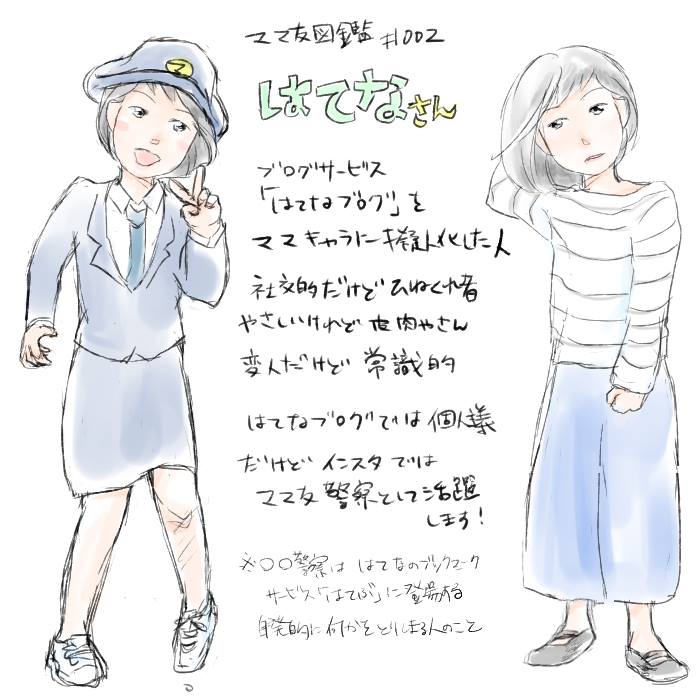 ママ友図鑑 #002
はてなさん
ブログサービス
「はてなブログ」を
ママキャラに擬人化した人
社交的だけどひねくれ者
やさしいけれど皮肉やさん
変人だけど 常識的
はてなブログでは 個人様
だけど インスタでは
ママ友警察として活躍
します!
※〇〇警察は はてなのブックマーク
サービス「はてぶ」に登場する
自発的に何かをとりしまる人のこと
マ